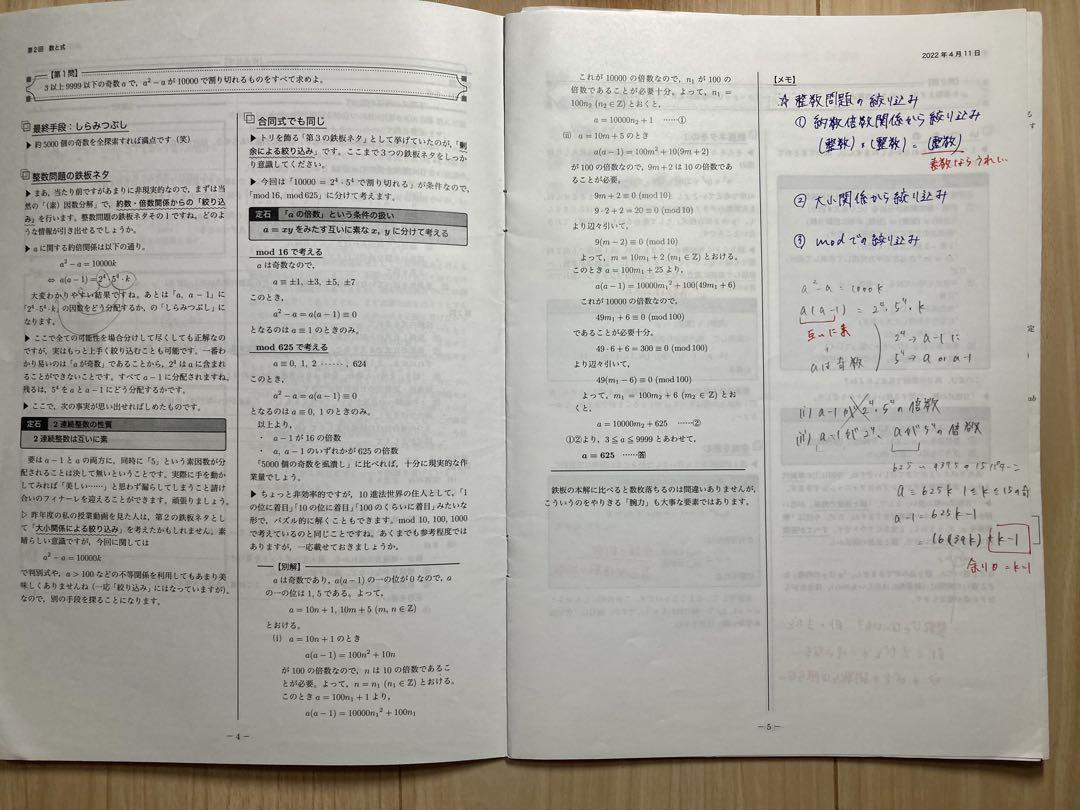 第2回 数と式
【第1問】
3以上9999以下の奇数aで，a²−aが10000で割り切れるものをすべて求めよ。
最終手段：しらみつぶし
▶ 約5000個の奇数を全探索すれば満点です（笑）
整数問題の鉄板ネタ
▶ まあ，当たり前ですがあまりに非現実的なので，まずは当
然の「(素）因数分解」で，約数・倍数関係からの「絞り込
み」を行います。整数問題の鉄板ネタその1ですね。どのよ
うな情報が引き出せるでしょうか。
▶ aに関する約倍関係は以下の通り。
a² − a = 10000k
⇔ a(a−1) = 2⁴·5⁴·k
大変わかりやすい結果ですね。あとは「a，a−1」に
「2⁴·5⁴·k」の因数をどう分配するか，の「しらみつぶし」に
なります。
▶ ここで全ての可能性を場合分けして尽くしても正解なの
ですが，実はもっと上手く絞り込むことも可能です。一番わ
かり易いのは「aが奇数」であることから，2⁴はaに含まれ
ることができないことです。すべてa−1に分配されますね。
残るは，5⁴をaとa−1にどう分配するかです。
▶ ここで，次の事実が思い出せればしめたものです。
定石 2連続整数の性質
2連続整数は互いに素
要はa−1とaの両方に，同時に「5」という素因数が分
配されることは決して無いということです。実際に手を動か
してみれば「美しい……」と思わず漏らしてしまうこと請け
合いのフィナーレを迎えることができます。頑張りましょう。
▷ 昨年度の私の授業動画を見た人は，第2の鉄板ネタとして
「大小関係による絞り込み」を考えたかもしれません。素
晴らしい意識ですが，今回に関しては
a² − a = 10000k
で判別式や，a > 100などの不等関係を利用してもあまり美
味しくありませんね（一応「絞り込み」にはなっていますが）。
なので，別の手段を探ることになります。
合同式でも同じ
▶ トリを飾る「第3の鉄板ネタ」として挙げていたのが，「剰
余による絞り込み」です。ここまで3つの鉄板ネタをしっか
り意識してください。
▶ 今回は「10000 = 2⁴·5⁴で割り切れる」が条件なので，
「mod 16，mod 625」に分けて考えます。
定石 「aの倍数」という条件の扱い
a = xyをみたす互いに素なx，yに分けて考える
mod 16で考える
aは奇数なので，
a ≡ ±1, ±3, ±5, ±7
このとき，
a² − a = a(a−1) ≡ 0
となるのはa ≡ 1のときのみ。
mod 625で考える
a ≡ 0, 1, 2 ……, 624
このとき，
a² − a = a(a−1) ≡ 0
となるのはa ≡ 0，1のときのみ。
以上より，
・ a−1が16の倍数
・ a，a−1のいずれかが625の倍数
「5000個の奇数を虱潰し」に比べれば，十分に現実的な作
業量でしょう。
▶ ちょっと非効率的ですが，10進法世界の住人として，「1
の位に着目」「10の位に着目」「100のくらいに着目」みたいな
形で，パズル的に解くこともできます。mod 10, 100, 1000
で考えているのと同じことですね。あくまでも参考程度では
ありますが，一応載せておきましょうか。
【別解】
aは奇数であり，a(a−1)の一の位が0なので，a
の一の位は1, 5である。よって，
a = 10n+1, 10m+5 (m, n∈Z)
とおける。
(i) a = 10n+1のとき
a(a−1) = 100n² + 10n
が100の倍数なので，nは10の倍数であるこ
とが必要。よって，n = n₁ (n₁∈Z)とおける。
このときa = 100n₁+1より，
a(a−1) = 10000n₁² + 100n₁
− 4 −
2022年4月11日
これが10000の倍数なので，n₁が100の
倍数であることが必要十分。よって，n₁ =
100n₂ (n₂∈Z)とおくと，
a = 10000n₂ + 1 ……①
(ii) a = 10m+5のとき
a(a−1) = 100m² + 10(9m+2)
が100の倍数なので，9m+2は10の倍数であ
ることが必要。
9m + 2 ≡ 0 (mod 10)
9·2 + 2 = 20 ≡ 0 (mod 10)
より辺々引いて，
9(m−2) ≡ 0 (mod 10)
よって，m = 10m₁+2 (m₁∈Z)とおける。
このときa = 100m₁+25より，
a(a−1) = 10000m₁² + 100(49m₁+6)
これが10000の倍数なので，
49m₁ + 6 ≡ 0 (mod 100)
であることが必要十分。
49·6 + 6 = 300 ≡ 0 (mod 100)
より辺々引いて，
49(m₁−6) ≡ 0 (mod 100)
よって，m₁ = 100m₂+6 (m₂∈Z)とお
くと，
a = 10000m₂ + 625 ……②
①②より，3≦a≦9999とあわせて，
a = 625 ……答
鉄板の本解に比べると数枚落ちるのは間違いありませんが，
こういうのをやりきる「腕力」も大事な要素ではあります。
【メモ】
☆ 整数問題の絞り込み
① 約数倍数関係から絞り込み
(整数)×(整数) = (整数)
素数ならうれしい
② 大小関係から絞り込み
③ modでの絞り込み
a²−a = 1000k
a(a−1) = 2⁴·5⁴·k
互いに素
aは奇数
2⁴→a−1に
5⁴→a or a−1
(i) a−1が2⁴·5⁴の倍数
(ii) a−1が2⁴, aが5⁴の倍数
625〜9375の15パターン
a = 625k 1≤k≤15の奇
a−1 = 625k−1
= 16(39k)+k−1
余り0 = k−1
− 5 −